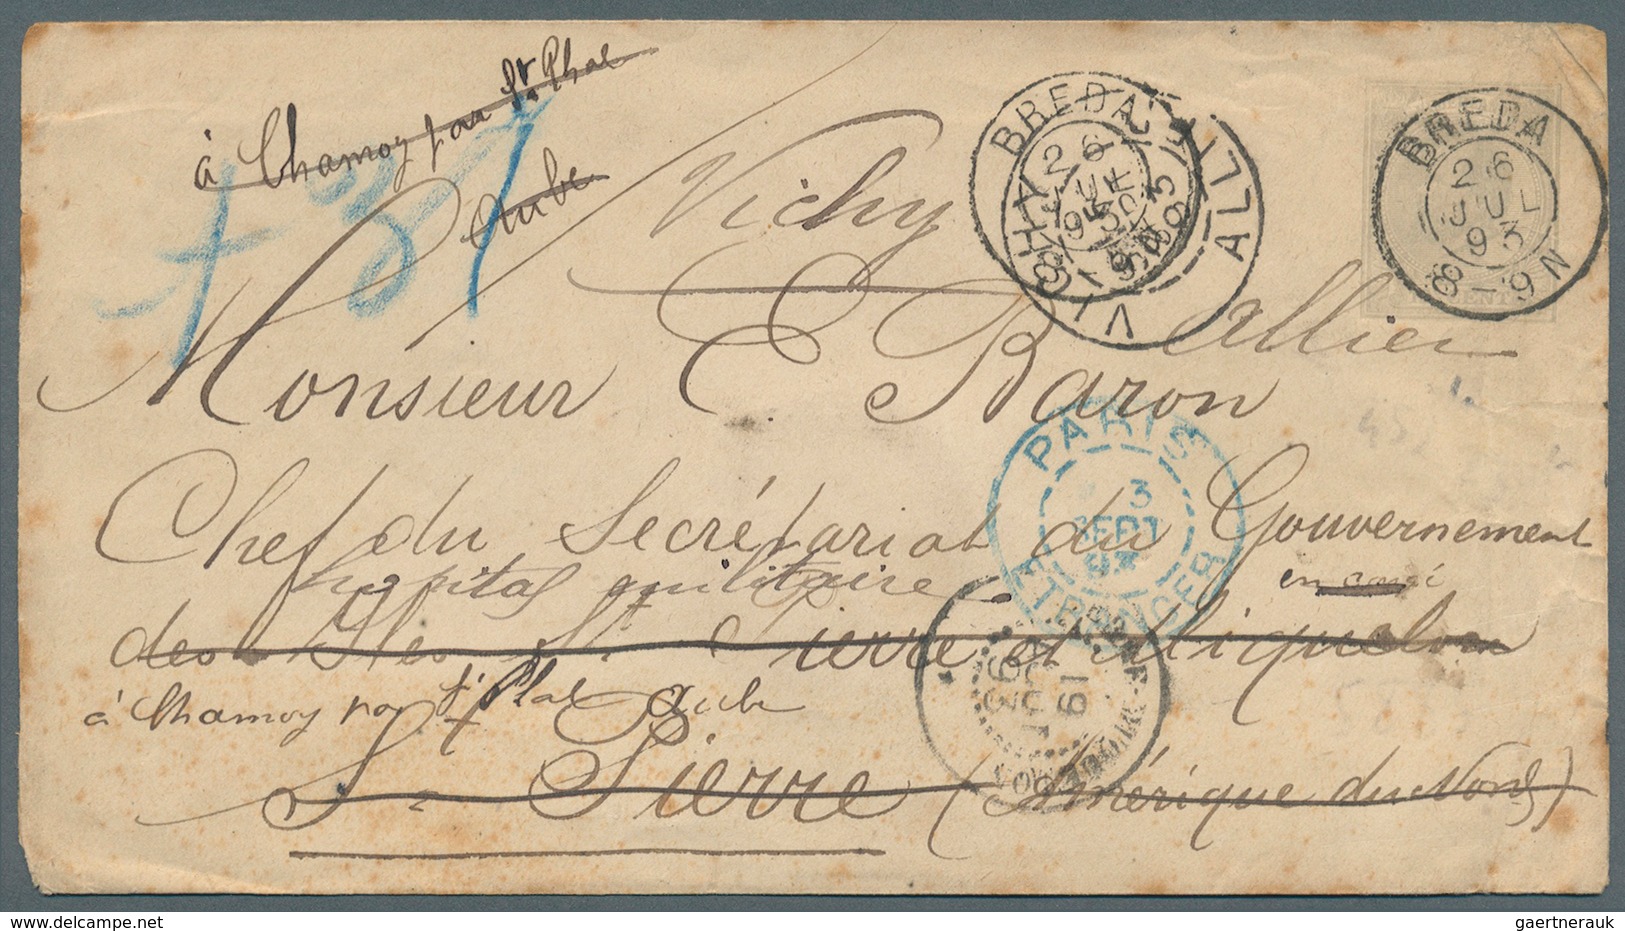 à Chamoy par St Phal
Aube
Vichy
Allier
Monsieur C. Baron
Chef du Secrétariat du Gouvernement
hopital militaire
en congé
des Iles St Pierre et Miquelon
à Chamoy par St Phal Aube
St Pierre (Amérique du Nord)
BREDA
26
JUL
93
8-9N
BREDA
26
JUL
93
8-9N
VICHY
ALLIER
PARIS
3
SEPT
93
ETRANGER
gaertnerauk